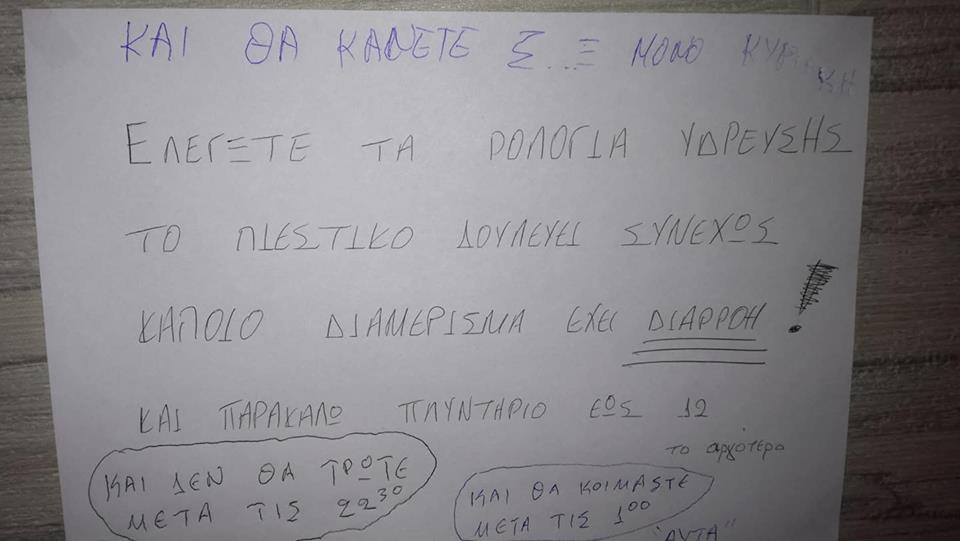 ΚΑΙ ΘΑ ΚΑΝΕΤΕ Σ...Ξ ΜΟΝΟ ΚΥΡΙΑΚΗ
ΕΛΕΓΞΤΕ ΤΑ ΡΟΛΟΓΙΑ ΥΔΡΕΥΣΗΣ
ΤΟ ΠΙΕΣΤΙΚΟ ΔΟΥΛΕΥΕΙ ΣΥΝΕΧΩΣ
ΚΑΠΟΙΟ ΔΙΑΜΕΡΙΣΜΑ ΕΧΕΙ ΔΙΑΡΡΟΗ !
ΚΑΙ ΠΑΡΑΚΑΛΩ ΠΛΥΝΤΗΡΙΟ ΕΩΣ 12
το αργότερο
ΚΑΙ ΔΕΝ ΘΑ ΤΡΩΤΕ
ΜΕΤΑ ΤΙΣ 22³⁰
ΚΑΙ ΘΑ ΚΟΙΜΑSΤΕ
ΜΕΤΑ ΤΙΣ 1⁰⁰
"ΑΥΤΑ"